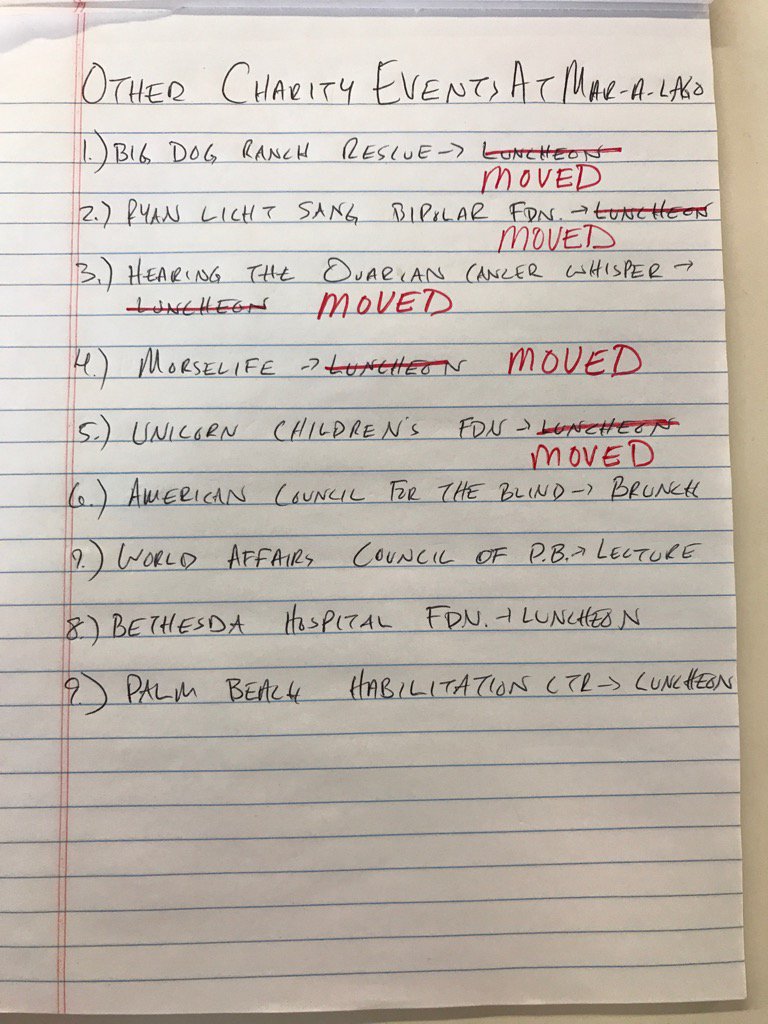 OTHER CHARITY EVENTS AT MAR-A-LAGO
1.) BIG DOG RANCH RESCUE → LUNCHEON
MOVED
2.) RYAN LICHT SANG BIPOLAR FDN. → LUNCHEON
MOVED
3.) HEARING THE OVARIAN CANCER WHISPER →
LUNCHEON MOVED
4.) MORSELIFE → LUNCHEON MOVED
5.) UNICORN CHILDREN'S FDN → LUNCHEON
MOVED
6.) AMERICAN COUNCIL FOR THE BLIND → BRUNCH
7.) WORLD AFFAIRS COUNCIL OF P.B. → LECTURE
8.) BETHESDA HOSPITAL FDN. → LUNCHEON
9.) PALM BEACH HABILITATION CTR → LUNCHEON